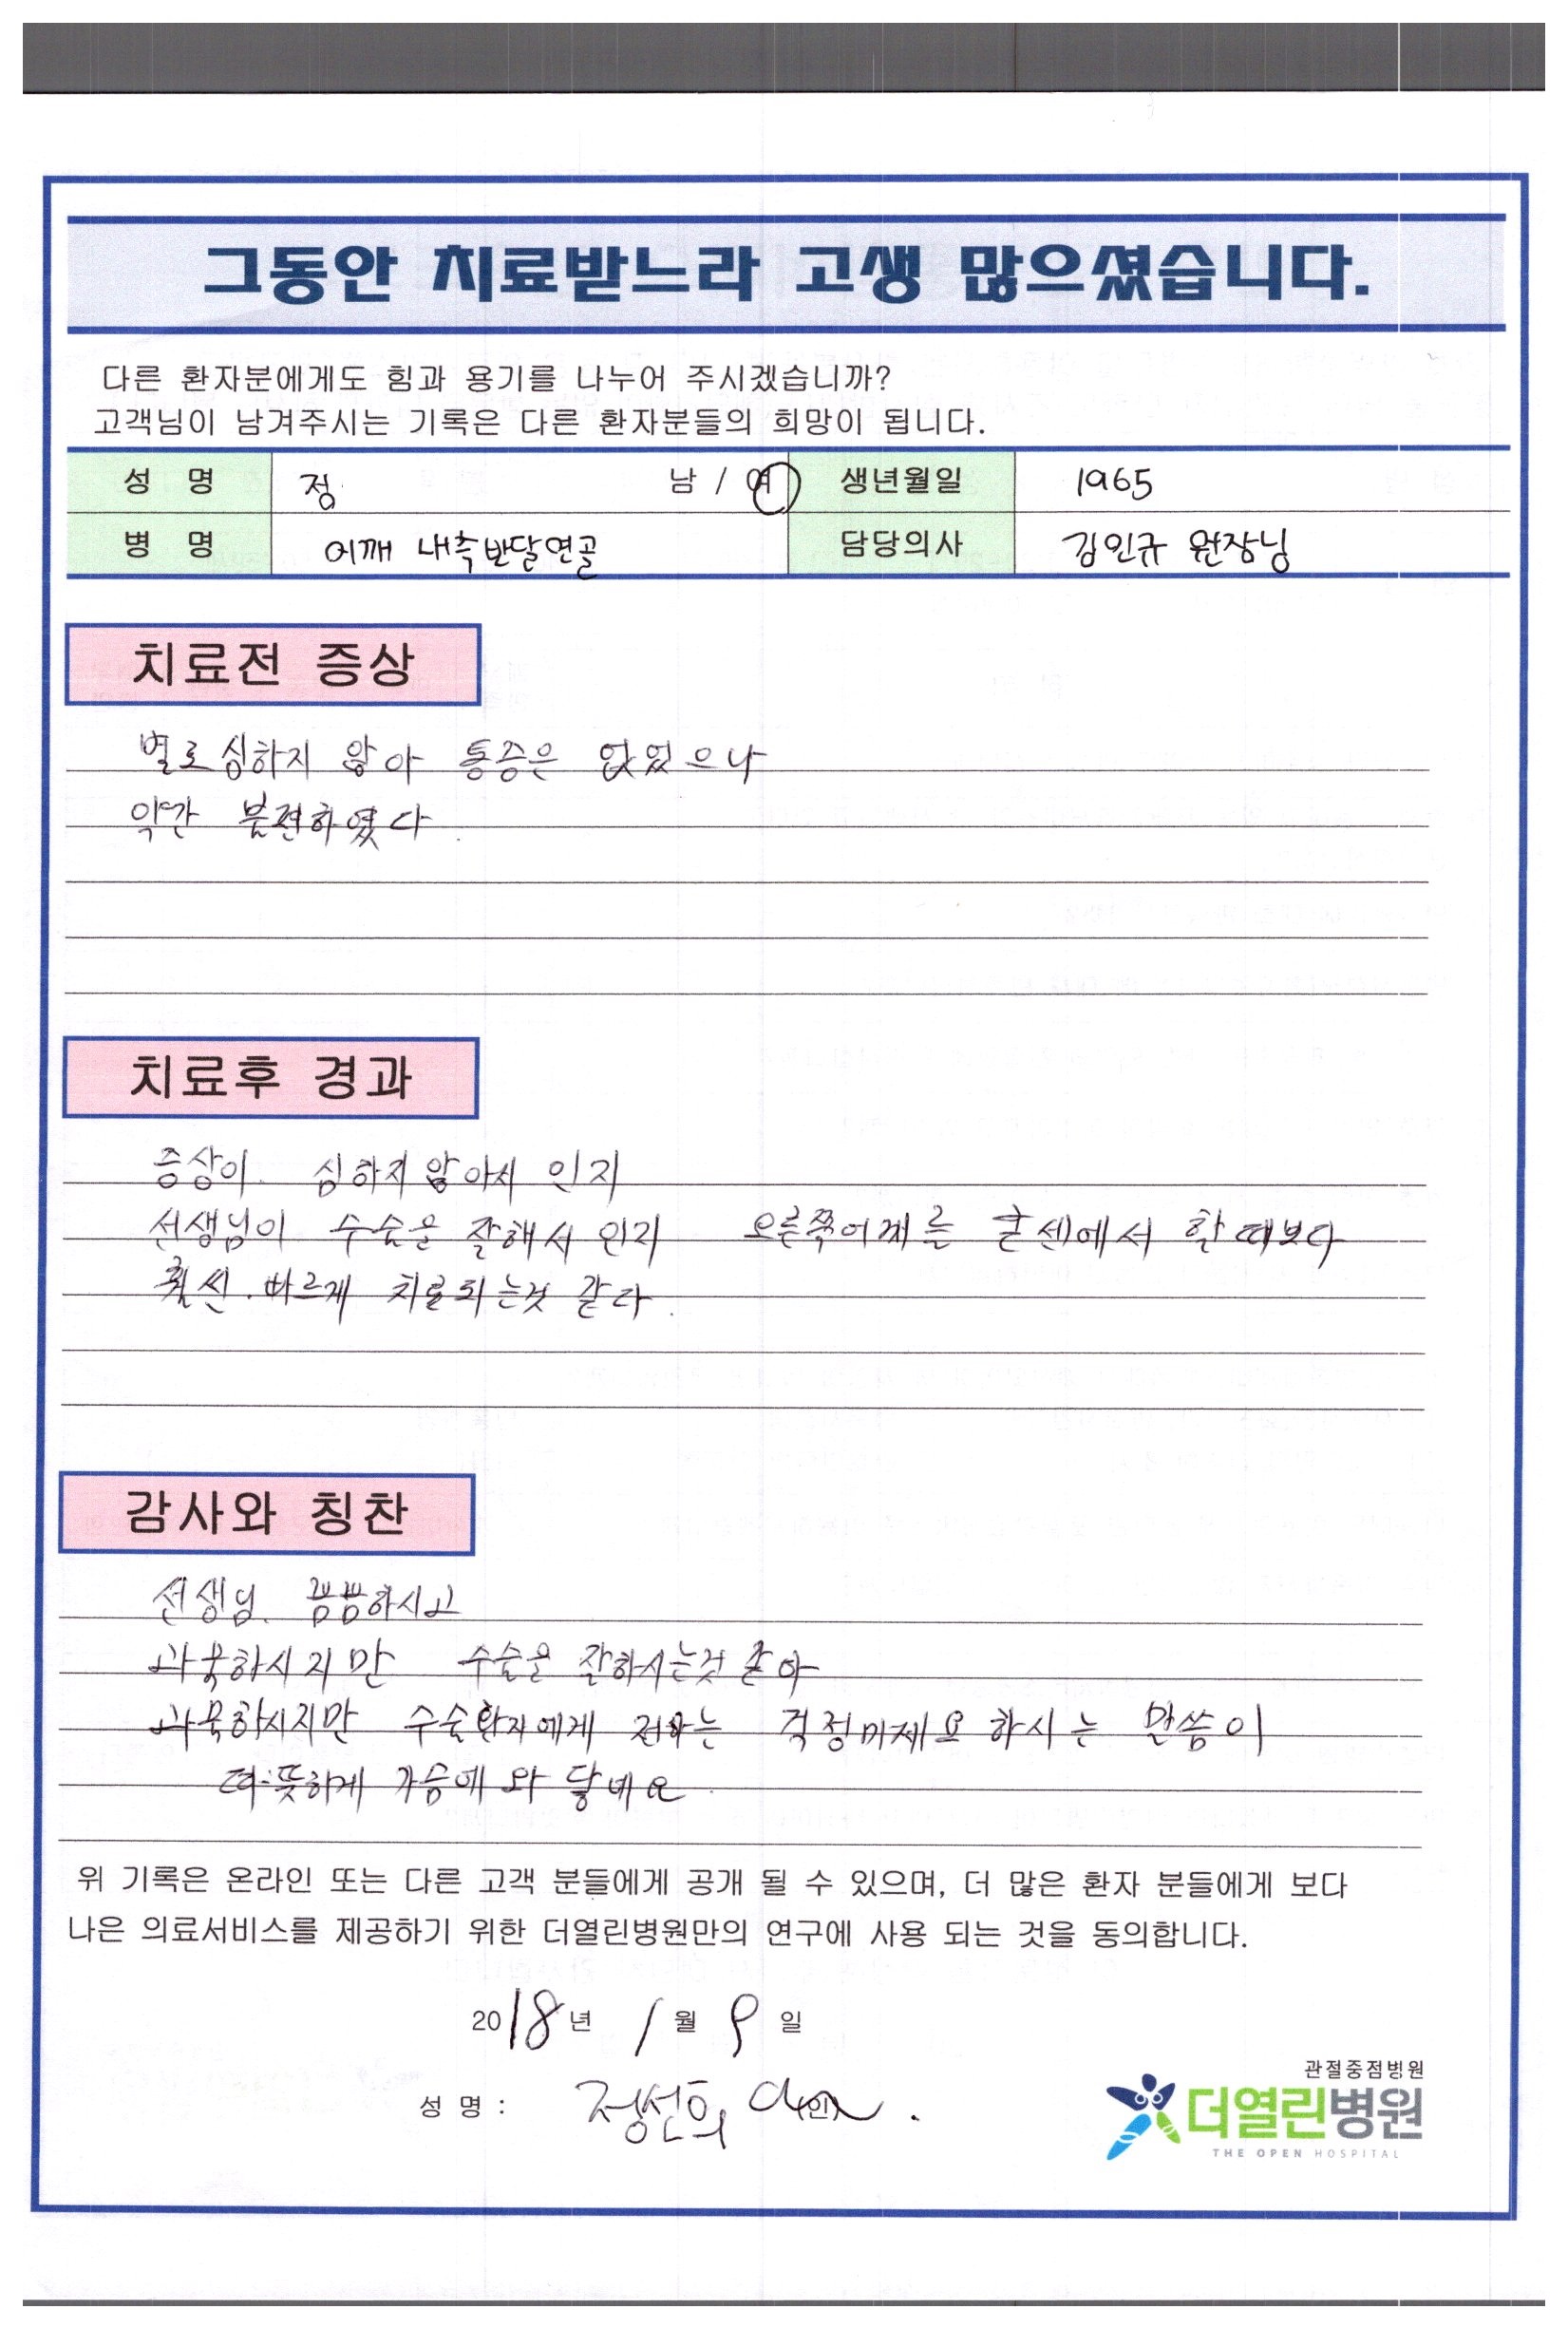 그동안 치료받느라 고생 많으셨습니다.
다른 환자분에게도 힘과 용기를 나누어 주시겠습니까?
고객님이 남겨주시는 기록은 다른 환자분들의 희망이 됩니다.
성 명 정 남 / 여 생년월일 1965
병 명 어깨 내측반달연골 담당의사 김인규 원장님
치료전 증상
별로 심하지 않아 통증은 없었으나
약간 불편하였다.
치료후 경과
증상이 심하지 않아서 인지
선생님이 수술을 잘해서 인지 오른쪽어깨를 큰센에서 할때보다
훨씬. 빠르게 치료되는것 같다.
감사와 칭찬
선생님. 뜸뜸하시고
과묵하시지만 수술을 잘하시는것 같아
과묵하시지만 수술환자에게 전하는 걱정마제요 하시는 말씀이
따뜻하게 가슴에 와 닿네요.
위 기록은 온라인 또는 다른 고객 분들에게 공개 될 수 있으며, 더 많은 환자 분들에게 보다
나은 의료서비스를 제공하기 위한 더열린병원만의 연구에 사용 되는 것을 동의합니다.
2018년 1월 9일
성 명 : 정선희 (인)
관절중점병원
더열린병원
THE OPEN HOSPITAL